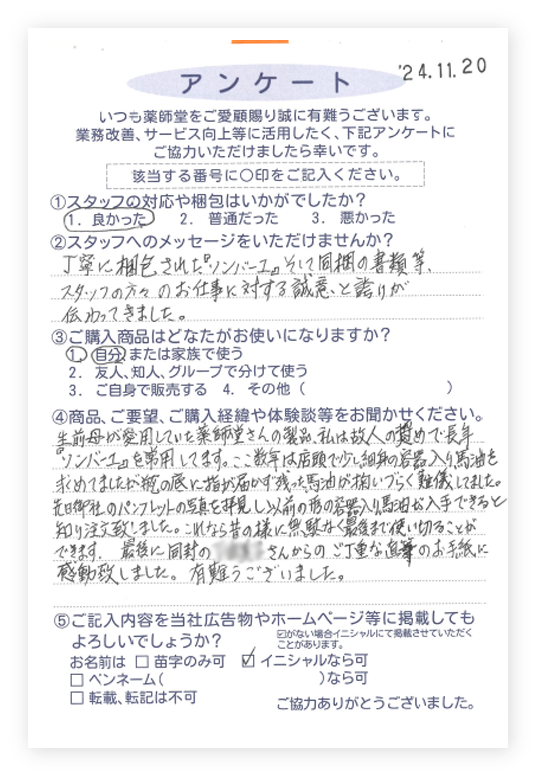 '24.11.20
アンケート
いつも薬師堂をご愛顧賜り誠に有難うございます。
業務改善、サービス向上等に活用したく、下記アンケートに
ご協力いただけましたら幸いです。
該当する番号に〇印をご記入ください。
①スタッフの対応や梱包はいかがでしたか?
1. 良かった 2. 普通だった 3. 悪かった
②スタッフへのメッセージをいただけませんか?
丁寧に梱包された『ソンバーユ』そして同梱の書類等、
スタッフの方々のお仕事に対する誠意、と誇りが
伝わってきました。
③ご購入商品はどなたがお使いになりますか?
1. 自分または家族で使う
2. 友人、知人、グループで分けて使う
3. ご自身で販売する 4. その他( )
④商品、ご要望、ご購入経緯や体験談等をお聞かせください。
生前母が愛用していた薬師堂さんの製品、私は故人の奨めで長年
『ソンバーユ』を常用してます。ここ数年は店頭で少し細身の容器入り馬油を
求めてましたが瓶の底に指が届かず残った馬油が掬いづらく難儀してました。
先日御社のパンフレットの写真を拝見し以前の形の容器入り馬油が入手できると
知り注文致しました。これなら昔の様に無駄なく最後まで使い切ることが
できます. 最後に同封の さんからのご丁重な直筆のお手紙に
感動致しました。有難うございました。
⑤ご記入内容を当社広告物やホームページ等に掲載しても
よろしいでしょうか?
☑がない場合イニシャルにて掲載させていただく
ことがあります。
お名前は □ 苗字のみ可 ☑ イニシャルなら可
□ ペンネーム( )なら可
□ 転載、転記は不可
ご協力ありがとうございました。